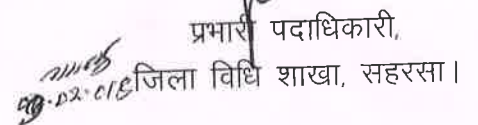 प्रभारी पदाधिकारी,
जिला विधि शाखा, सहरसा।